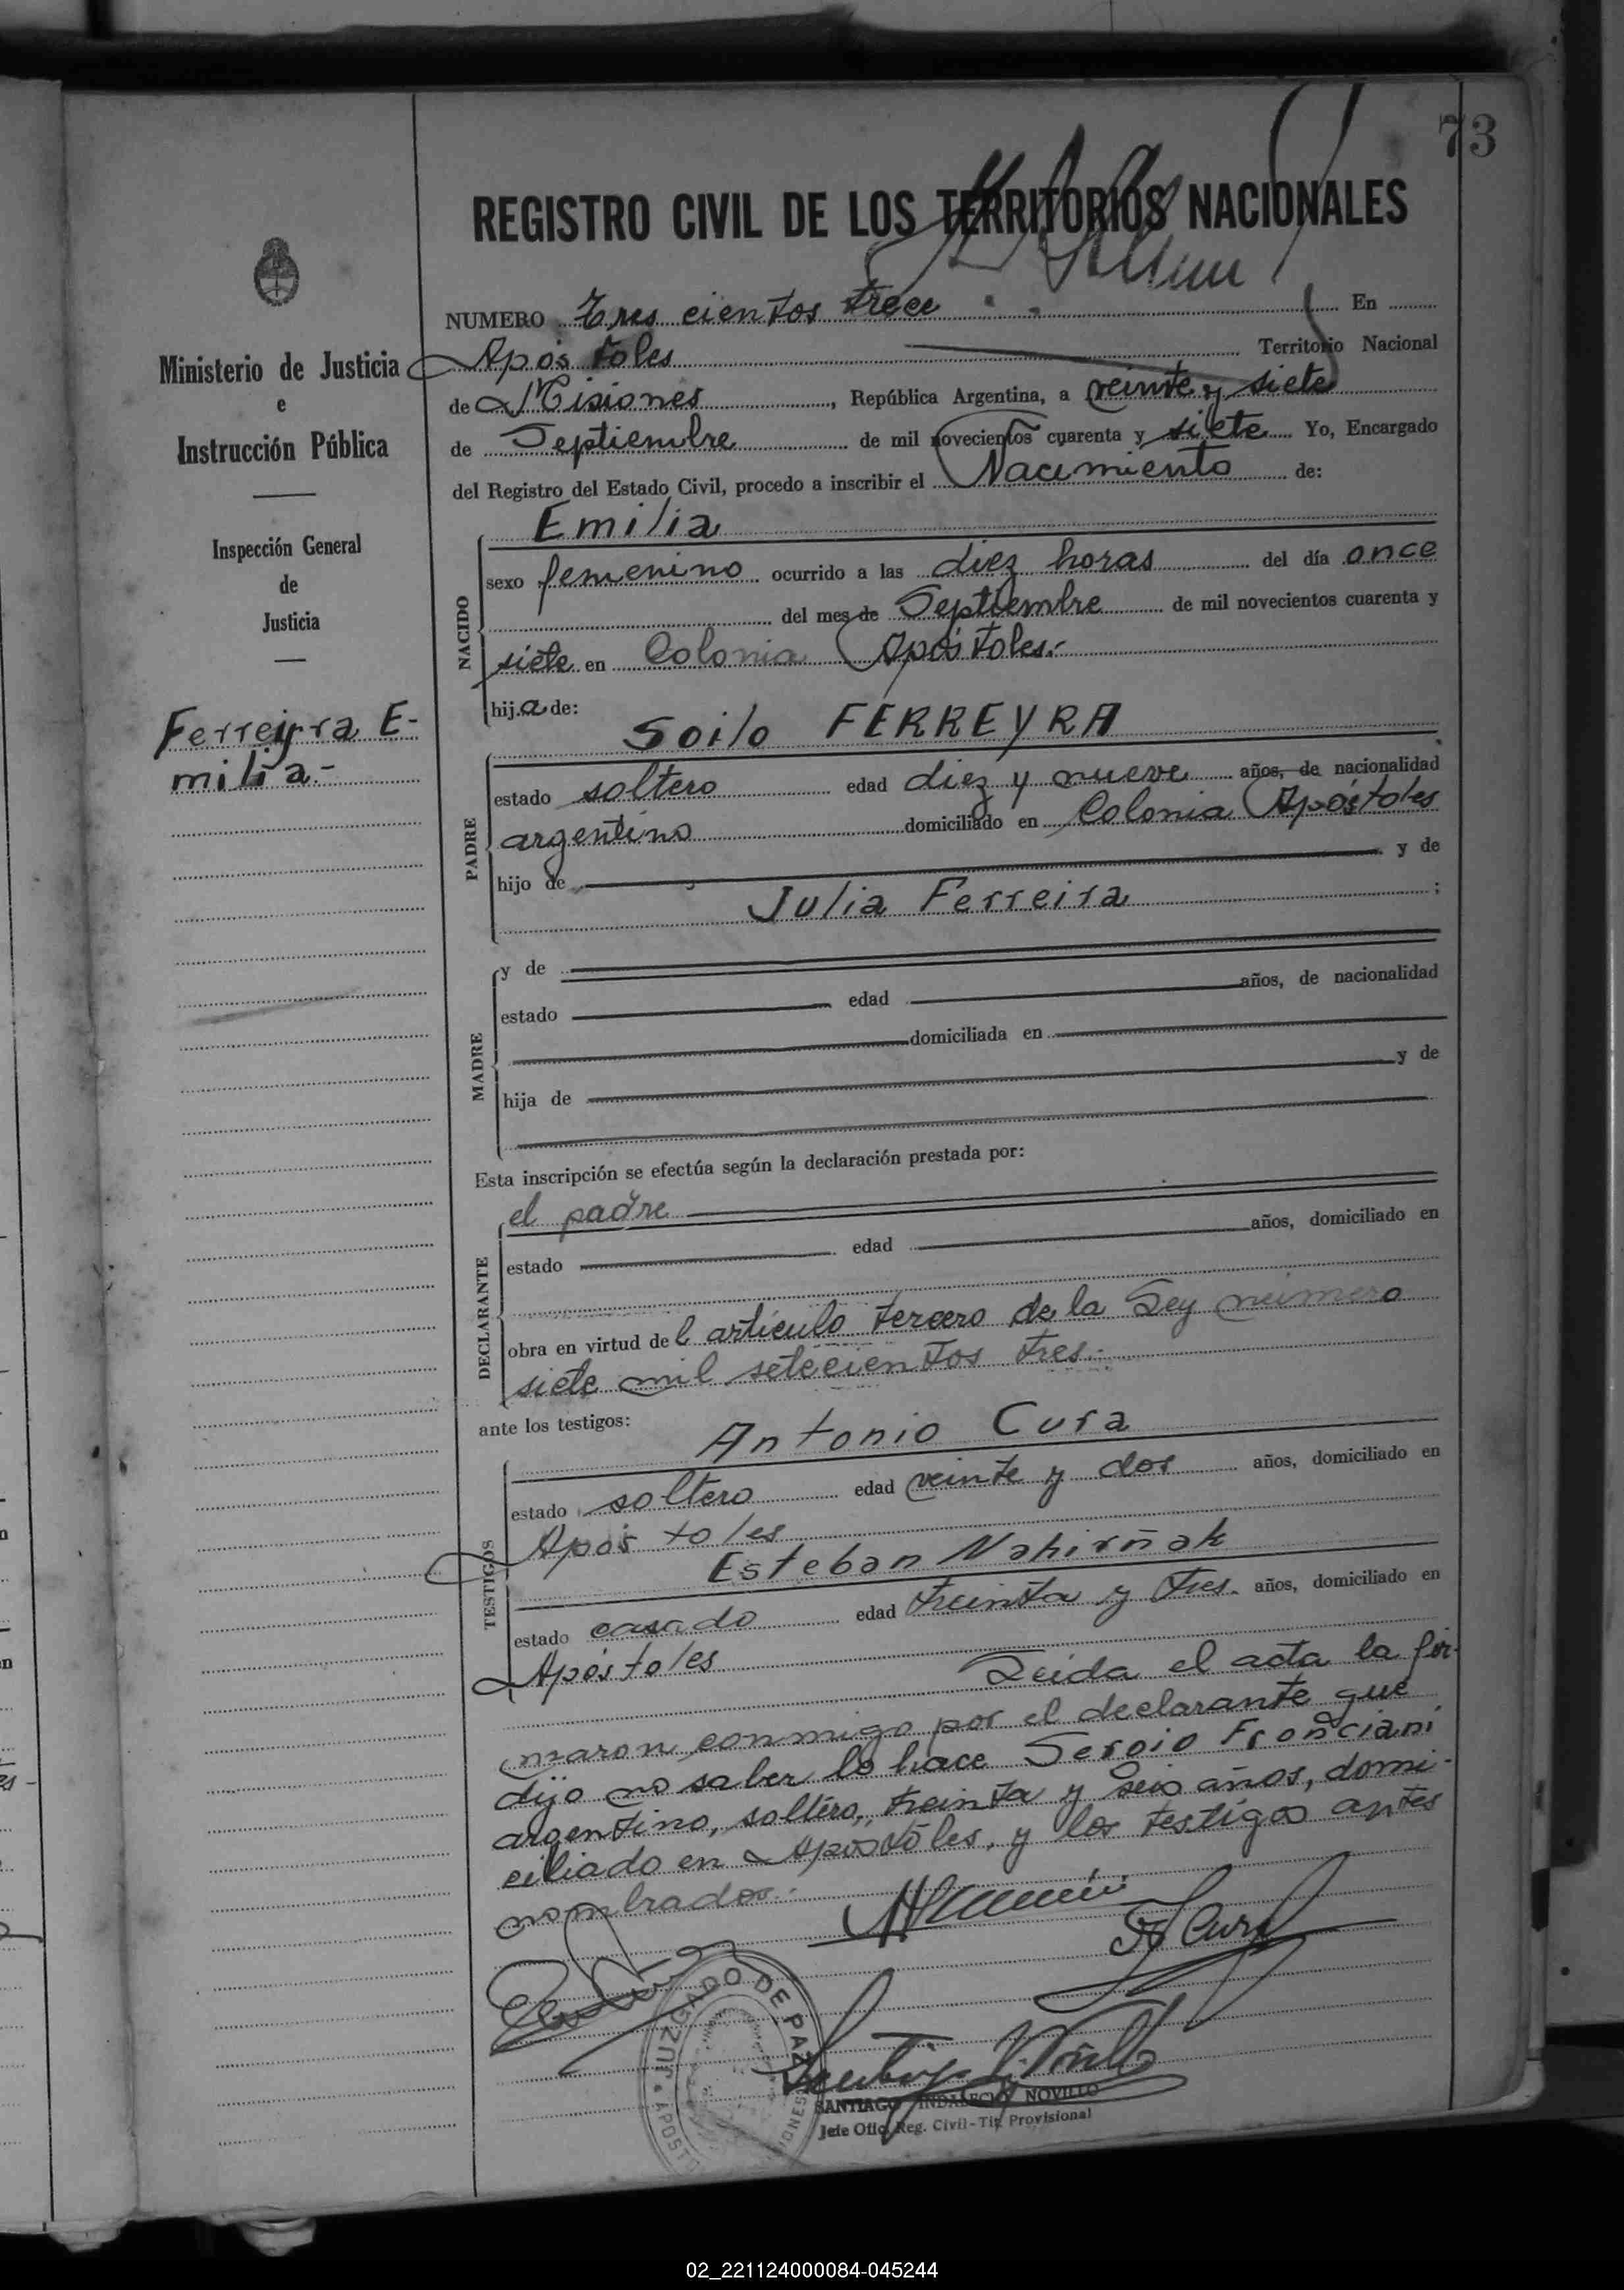 73
REGISTRO CIVIL DE LOS TERRITORIOS NACIONALES
NUMERO Tres cientos trece En
Apóstoles Territorio Nacional
de Misiones, República Argentina, a veinte y siete
de Septiembre de mil novecientos cuarenta y siete Yo, Encargado
del Registro del Estado Civil, procedo a inscribir el Nacimiento de:
Ministerio de Justicia
e
Instrucción Pública
Inspección General
de
Justicia
Ferreyra E-
milia.-
NACIDO
Emilia
sexo femenino ocurrido a las diez horas del día once
del mes de Septiembre de mil novecientos cuarenta y
siete en Colonia Apóstoles.-
hija de:
PADRE
Soilo FERREYRA
estado soltero edad diez y nueve años, de nacionalidad
argentino domiciliado en Colonia Apóstoles
hijo de y de
Julia Ferreira ;
MADRE
y de
estado edad años, de nacionalidad
domiciliada en
hija de y de
Esta inscripción se efectúa según la declaración prestada por:
DECLARANTE
el padre
estado edad años, domiciliado en
obra en virtud del artículo tercero de la Ley número
siete mil setecientos tres.-
ante los testigos:
TESTIGOS
Antonio Cura
estado soltero edad veinte y dos años, domiciliado en
Apóstoles
Esteban Nahirñak
estado casado edad treinta y tres. años, domiciliado en
Apóstoles
Leida el acta la fir-
maron conmigo por el declarante que
dijo no saber lo hace Sergio Fronciani
argentino, soltero, treinta y seis años, domi-
ciliado en Apóstoles, y los testigos antes
nombrados.-
A Cura
JUZGADO DE PAZ
SANTIAGO INDALECIO NOVILLO
Jefe Ofic. Reg. Civil-Tit. Provisional
02_221124000084-045244